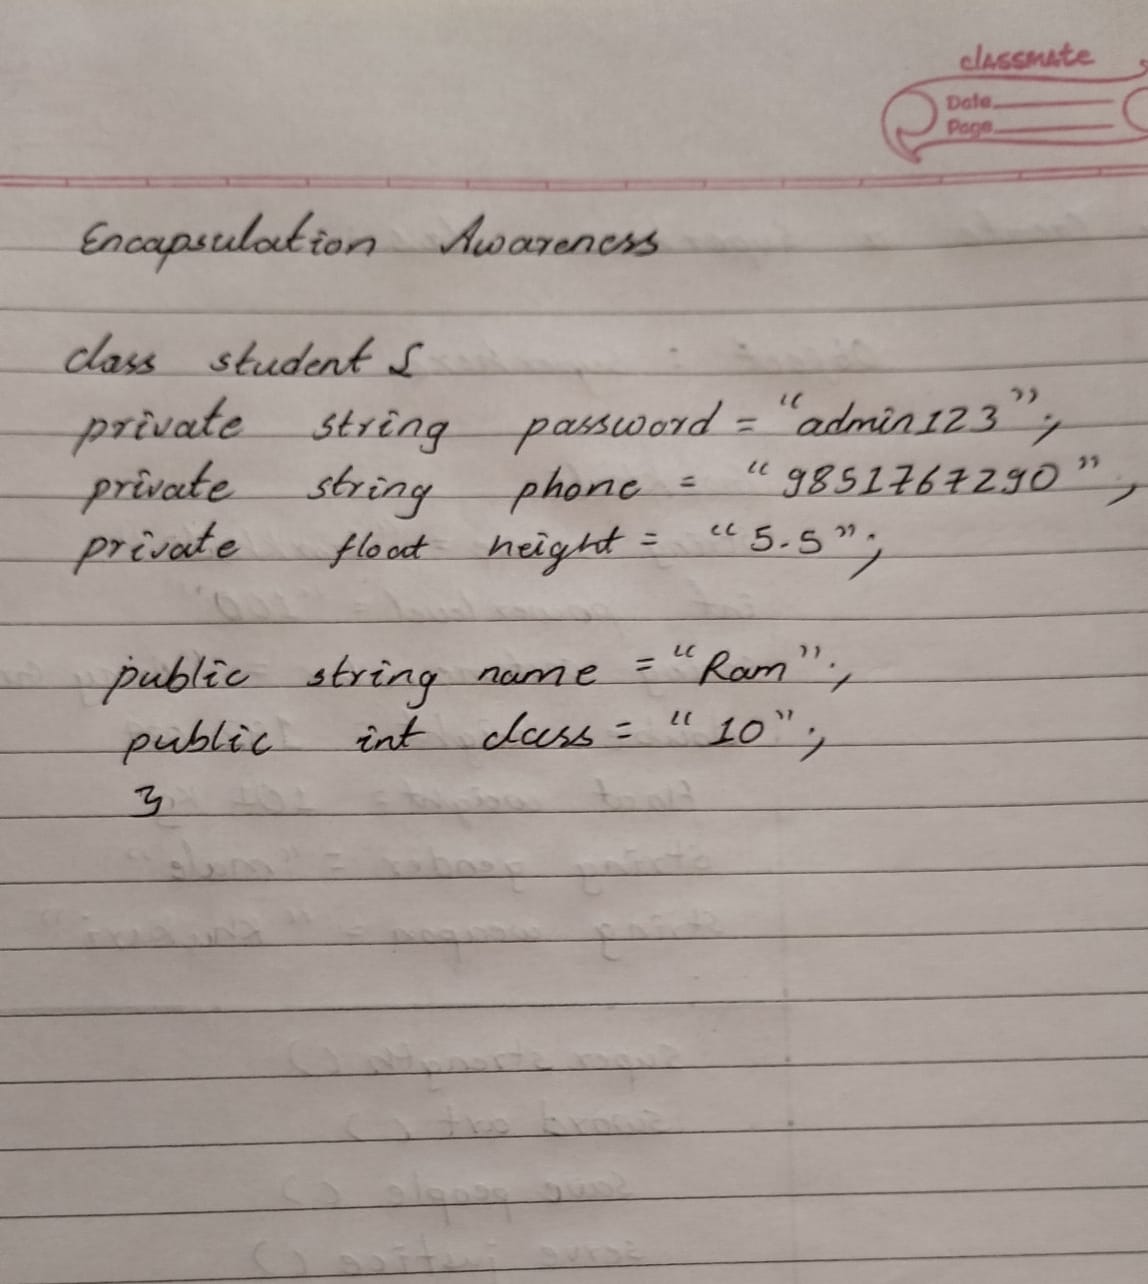 classmate
Date
Page
Encapsulation Awareness
class student {
private string password = "admin123";
private string phone = "9851767290",
private float height = "5.5";
public string name = "Ram";
public int class = "10";
}